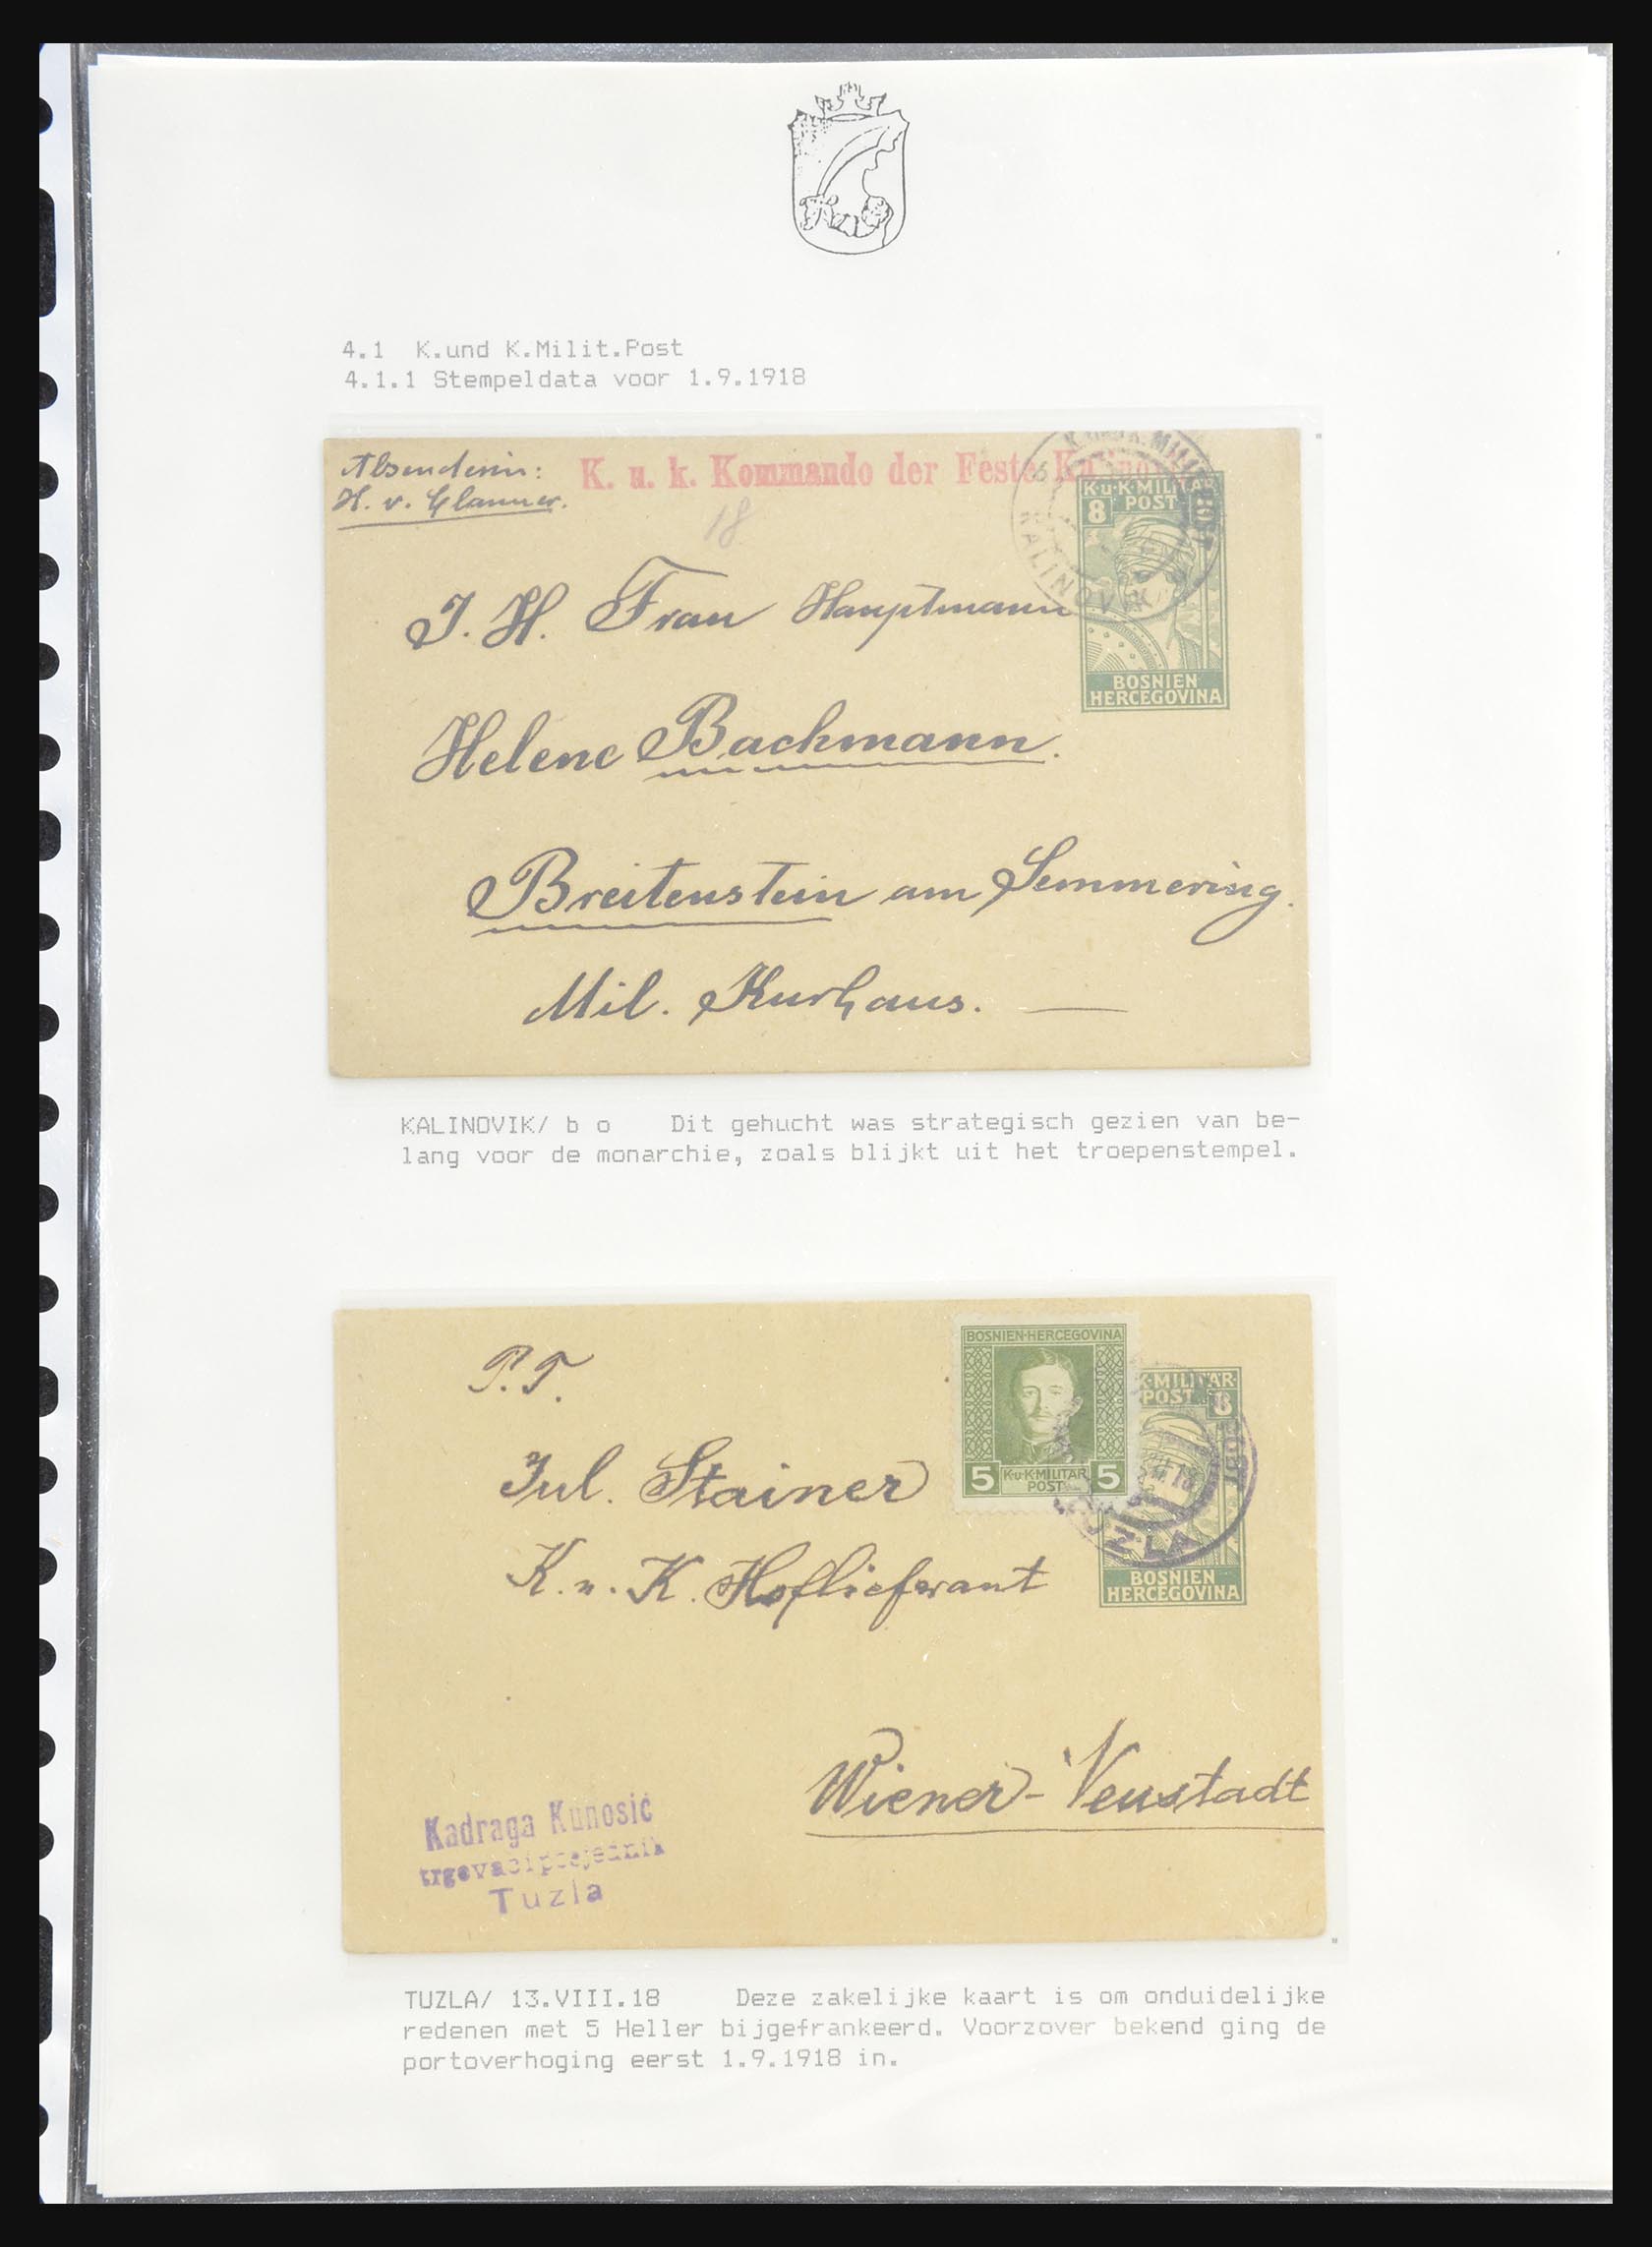 4.1 K.und K.Milit.Post
4.1.1 Stempeldata voor 1.9.1918
Absenderin:
H. v.
K. u. k. Kommando der Feste Kalinovik
18
K.und K.MILIT. POST
KALINOVIK
K·u·K·MILITÄR
8 POST
BOSNIEN
HERCEGOVINA
I. H. Frau Hauptmann
Helene Bachmann.
Breitenstein am Semmering.
Mil. Kurhaus.
KALINOVIK/ b o Dit gehucht was strategisch gezien van be-
lang voor de monarchie, zoals blijkt uit het troepenstempel.
P.T.
BOSNIEN-HERCEGOVINA
5 K·u·K·MILITÄR 5
POST
K·MILITÄR
POST 8
TUZLA
BOSNIEN
HERCEGOVINA
Jul. Stainer
K. u. K. Hoflieferant
Wiener-Neustadt
Kadraga Kunosić
trgovački posjednik
Tuzla
TUZLA/ 13.VIII.18 Deze zakelijke kaart is om onduidelijke
redenen met 5 Heller bijgefrankeerd. Voorzover bekend ging de
portoverhoging eerst 1.9.1918 in.